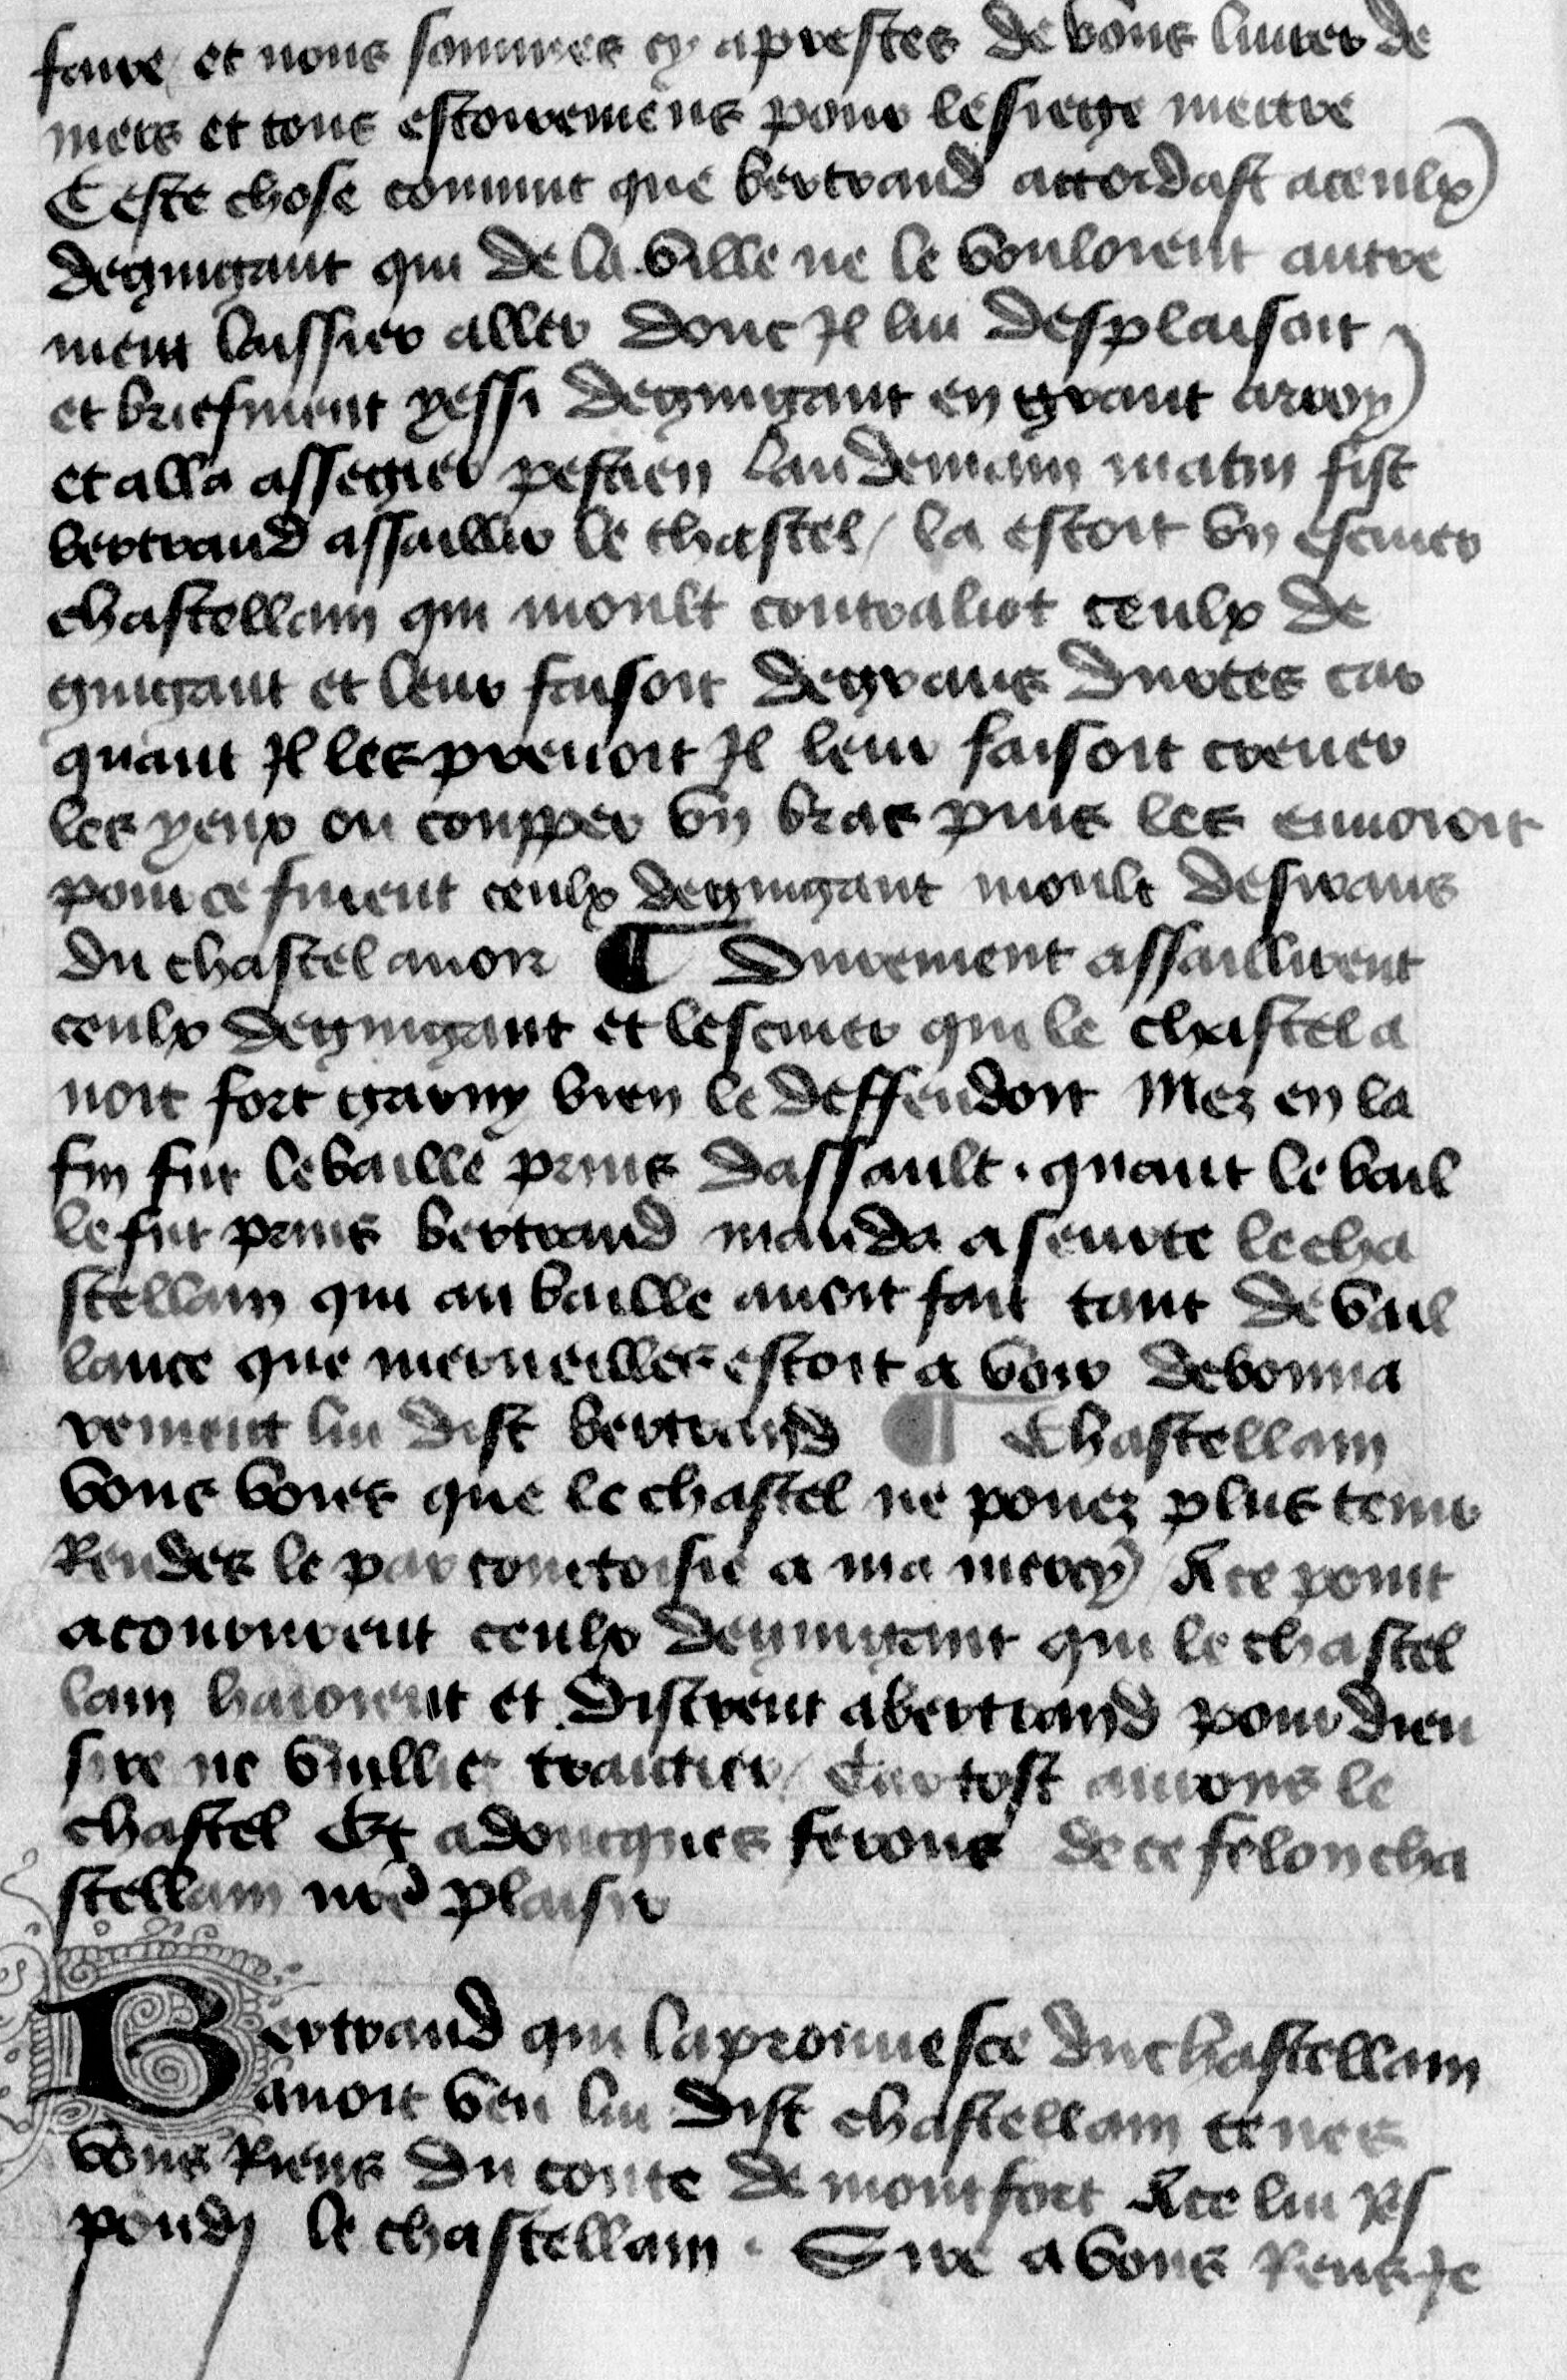 faire / et nous sommes cy aprestes de vous liurer de
niers et tous estoremens pour le siege mettre
Ceste chose conuint que bertrand accordast a ceulx
de guigant qui de la ville ne le vouloient autre
ment laissier aller donc Il lui desplaisoit
et briefment yssi de guigant en grant arroy
et alla assegier pestien Landemain matin fist
bertrand assaillir le chastel / la estoit vn escuier
chastellain qui moult contralioit ceulx de
guigant et leur faisoit de grans durtes car
quant Il les prenoit Il leur faisoit creuer
les yeux ou coupper vn bras puis les enuoioit
pour ce furent ceulx de guigant moult desirans
du chastel auoir ¶ Durement assaillirent
ceulx de guigant et lescuier qui le chastel a
uoit fort garny bien le deffendoit Mez en la
fin fut le baille prins dassault . quant le bail
le fut prins bertrand manda a seurte le cha
stellain qui au baille auoit fait tant de vail
lance que merueilles estoit a voir debonna
rement lui dist bertrand ¶ Chastellain
vous voies que le chastel ne pouez plus tenir
Rendes le par courtoisie a ma mercy A ce point
acoururent ceulx de guigant qui le chastel
lain haioient et distrent a bertrand pour dieu
sire ne vuillies traictier / Car tost aurons le
chastel Et adoncques ferons de ce felon cha
stellain nre plaisir
Bertrand qui la prouuesce du chastellain
auoit veu lui dist chastellain tenes
vous Riens du conte de montfort A ce lui Res
pondi le chastellain . Sire a vous Rens Je